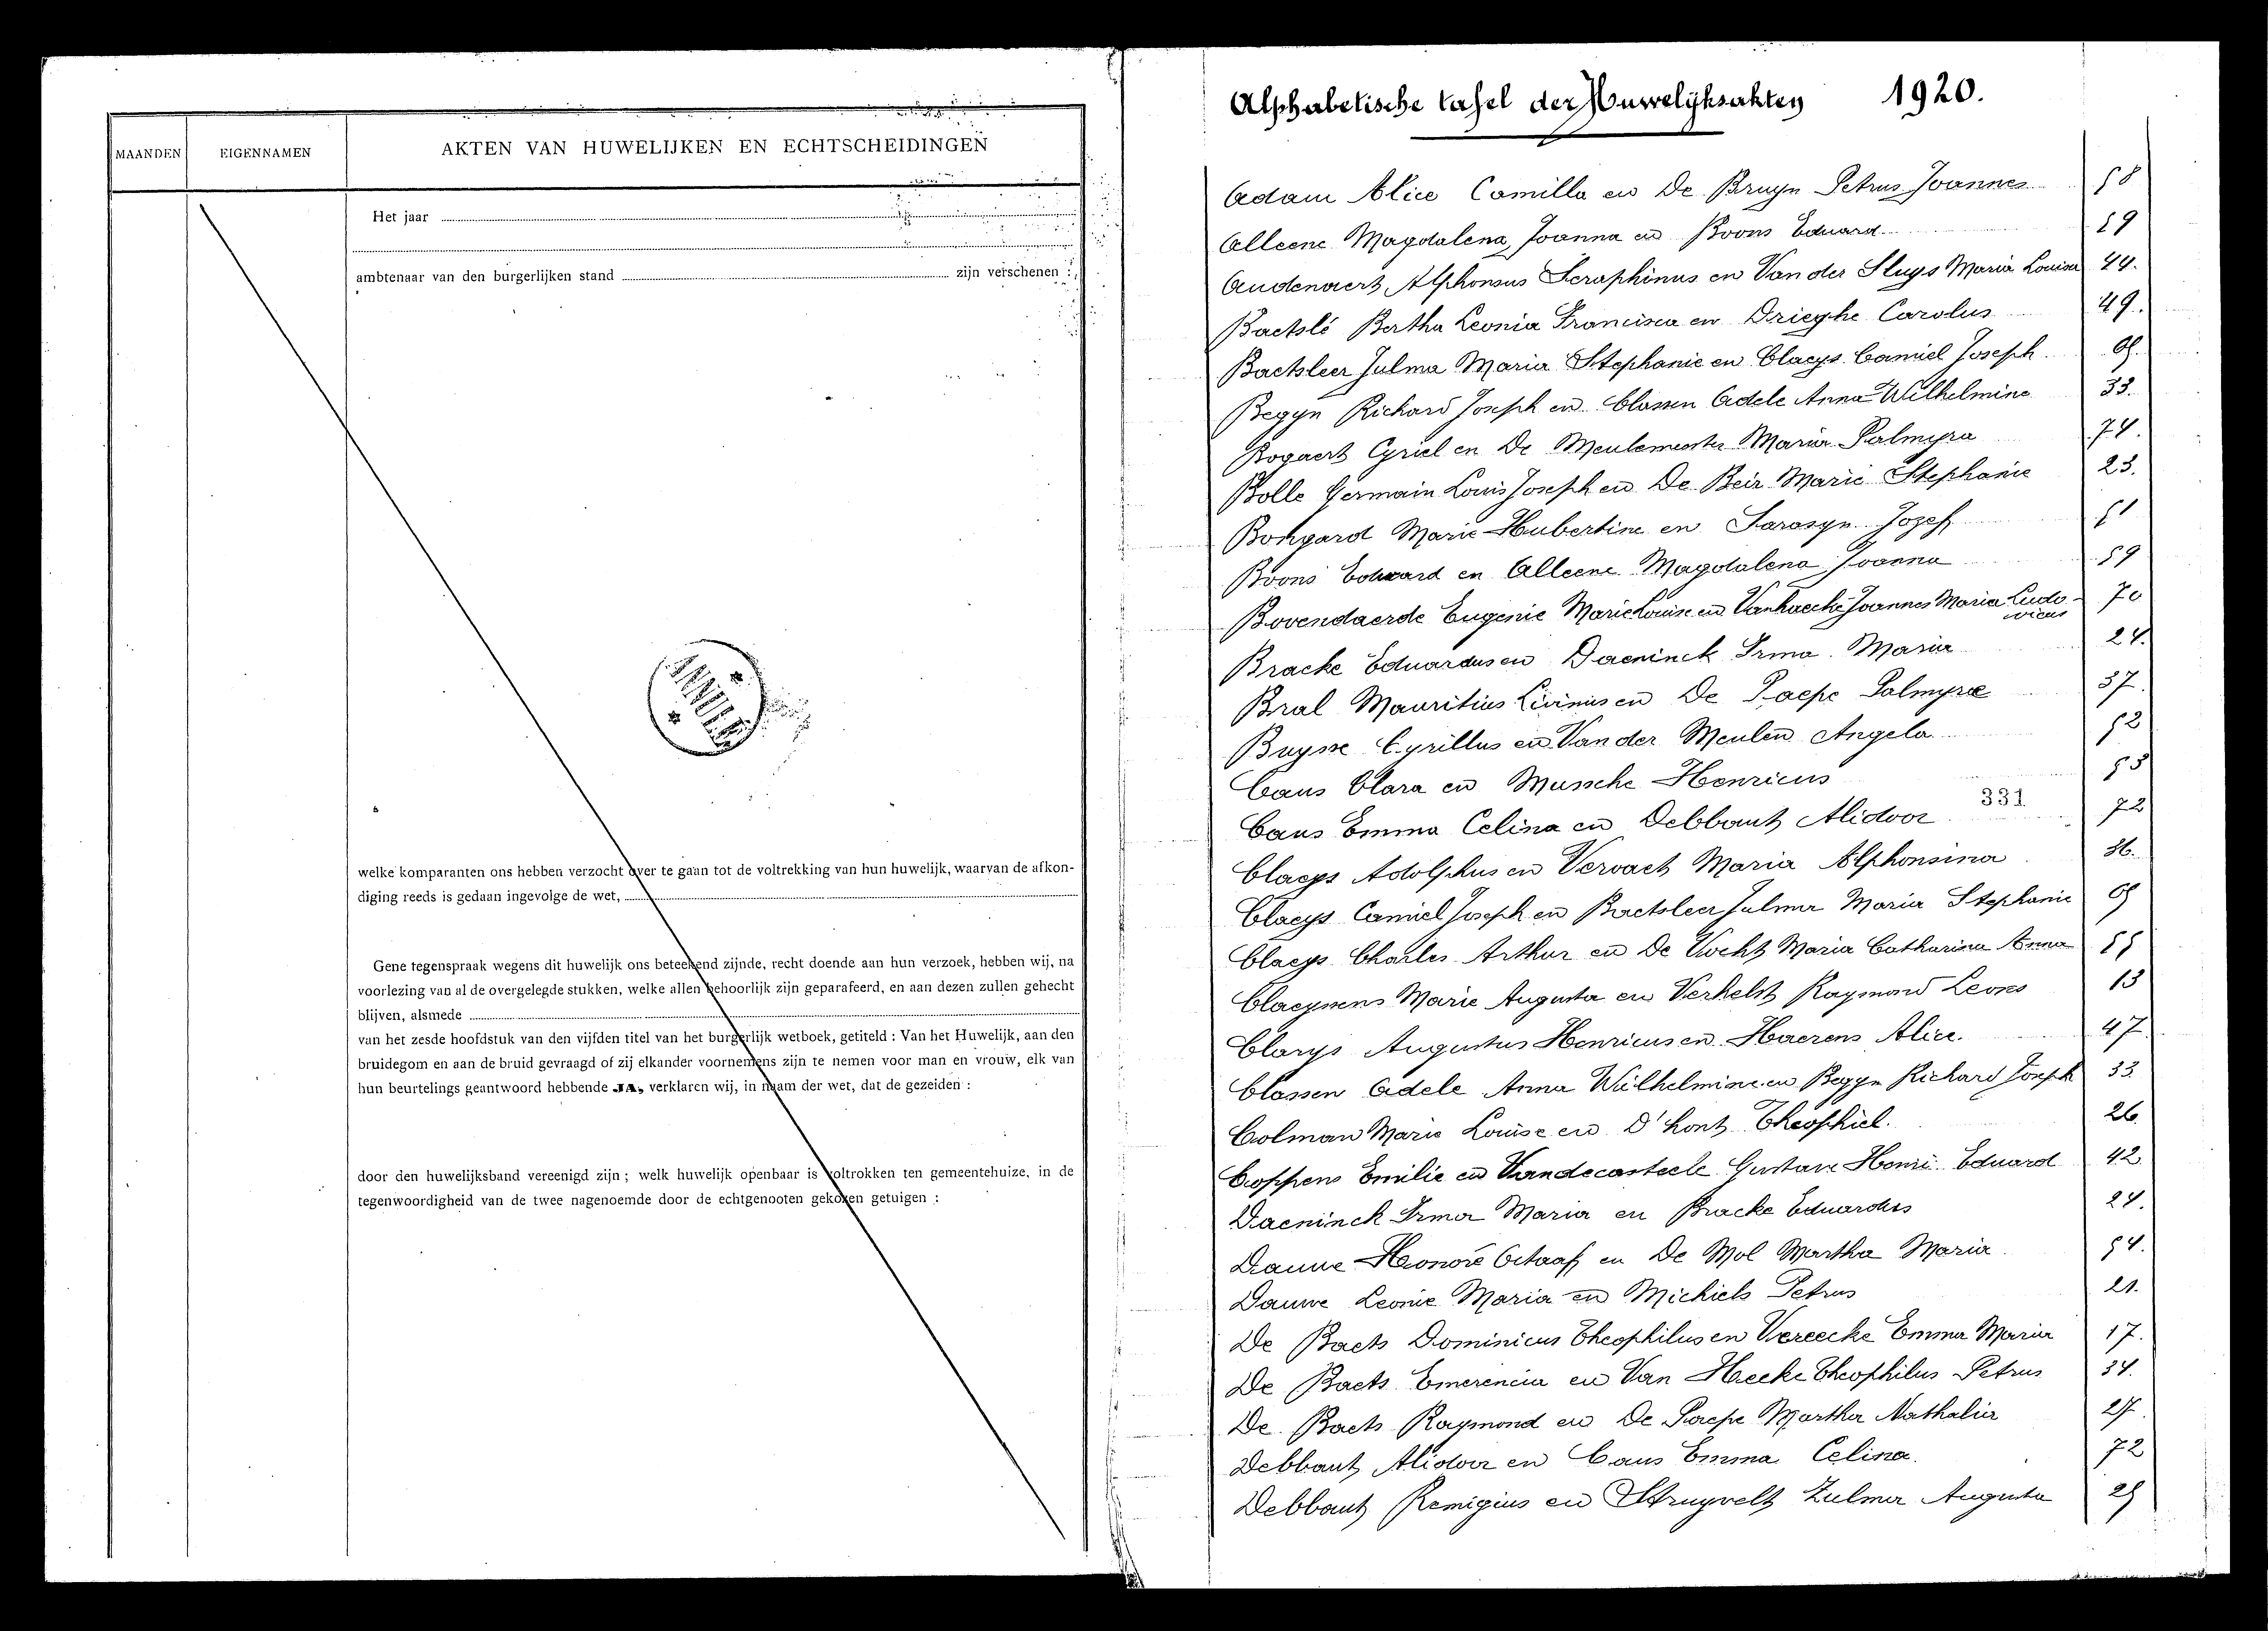 MAANDEN
EIGENNAMEN
AKTEN VAN HUWELIJKEN EN ECHTSCHEIDINGEN
Het jaar
ambtenaar van den burgerlijken stand zijn verschenen :
welke komparanten ons hebben verzocht over te gaan tot de voltrekking van hun huwelijk, waarvan de afkon-
diging reeds is gedaan ingevolge de wet,
Gene tegenspraak wegens dit huwelijk ons beteekend zijnde, recht doende aan hun verzoek, hebben wij, na
voorlezing van al de overgelegde stukken, welke allen behoorlijk zijn geparafeerd, en aan dezen zullen gehecht
blijven, alsmede
van het zesde hoofdstuk van den vijfden titel van het burgerlijk wetboek, getiteld : Van het Huwelijk, aan den
bruidegom en aan de bruid gevraagd of zij elkander voornemens zijn te nemen voor man en vrouw, elk van
hun beurtelings geantwoord hebbende JA, verklaren wij, in naam der wet, dat de gezeiden :
door den huwelijksband vereenigd zijn ; welk huwelijk openbaar is voltrokken ten gemeentehuize, in de
tegenwoordigheid van de twee nagenoemde door de echtgenooten gekozen getuigen :
Alphabetische tafel der Huwelijksakten 1920.
Adam Alice Camilla en De Bruyn Petrus Joannes 58
Alleene Magdalena Joanna en Boons Eduard 59
Audenaert Alphonsus Seraphinus en Van der Sluys Maria Louisa 44.
Baetslé Bertha Leonia Francisca en Drieghe Carolus 49.
Baetsleer Julma Maria Stephanie en Claeys Camiel Joseph 65.
Begyn Richard Joseph en Classen Adele Anna Wilhelmine 33.
Bogaert Cyriel en De Meulemeester Maria Palmyra 74.
Bolle Germain Louis Joseph en De Beir Marie Stephanie 23.
Bongard Marie Hubertine en Sarasyn Jozef 51
Boons Edward en Alleene Magdalena Joanna 59
Bovendaerde Eugenie Marie Louise en Vanhaecke Joannes Maria Ludo- 70
vicus
Bracke Eduardus en Daeninck Irma Maria 24.
Bral Mauritius Livinus en De Paepe Palmyre 37.
Buysse Cyrillus en Van der Meulen Angela 52
Caus Clara en Mussche Henricus 53
Caus Emma Celina en Debbaut Alidoor 72
331
Claeys Adolphus en Vervaet Maria Alphonsina 36.
Claeys Camiel Joseph en Baetsleer Julma Maria Stephanie 65
Claeys Charles Arthur en De Vocht Maria Catharina Anna 55
Claeyssens Marie Augusta en Verhelst Raymond Leons 13
Clarys Augustus Henricus en Haerens Alice. 47
Classen Adele Anna Wilhelmine en Begyn Richard Joseph 33.
Colman Marie Louise en D'hont Theophiel. 26.
Coppens Emilie en Vandecasteele Gustave Henri Eduard 42
Daeninck Irma Maria en Bracke Eduardus 24.
Dauwe Honoré Octaaf en De Mol Martha Maria 54.
Dauwe Leonie Maria en Michiels Petrus 21.
De Baets Dominicus Theophilus en Vereecke Emma Maria 17.
De Baets Emerencia en Van Hecke Theophilus Petrus 34.
De Baets Raymond en De Paepe Martha Nathalia 27.
Debbaut Alidoor en Caus Emma Celina. 72
Debbaut Remigius en Struyvelt Zulma Augusta 25